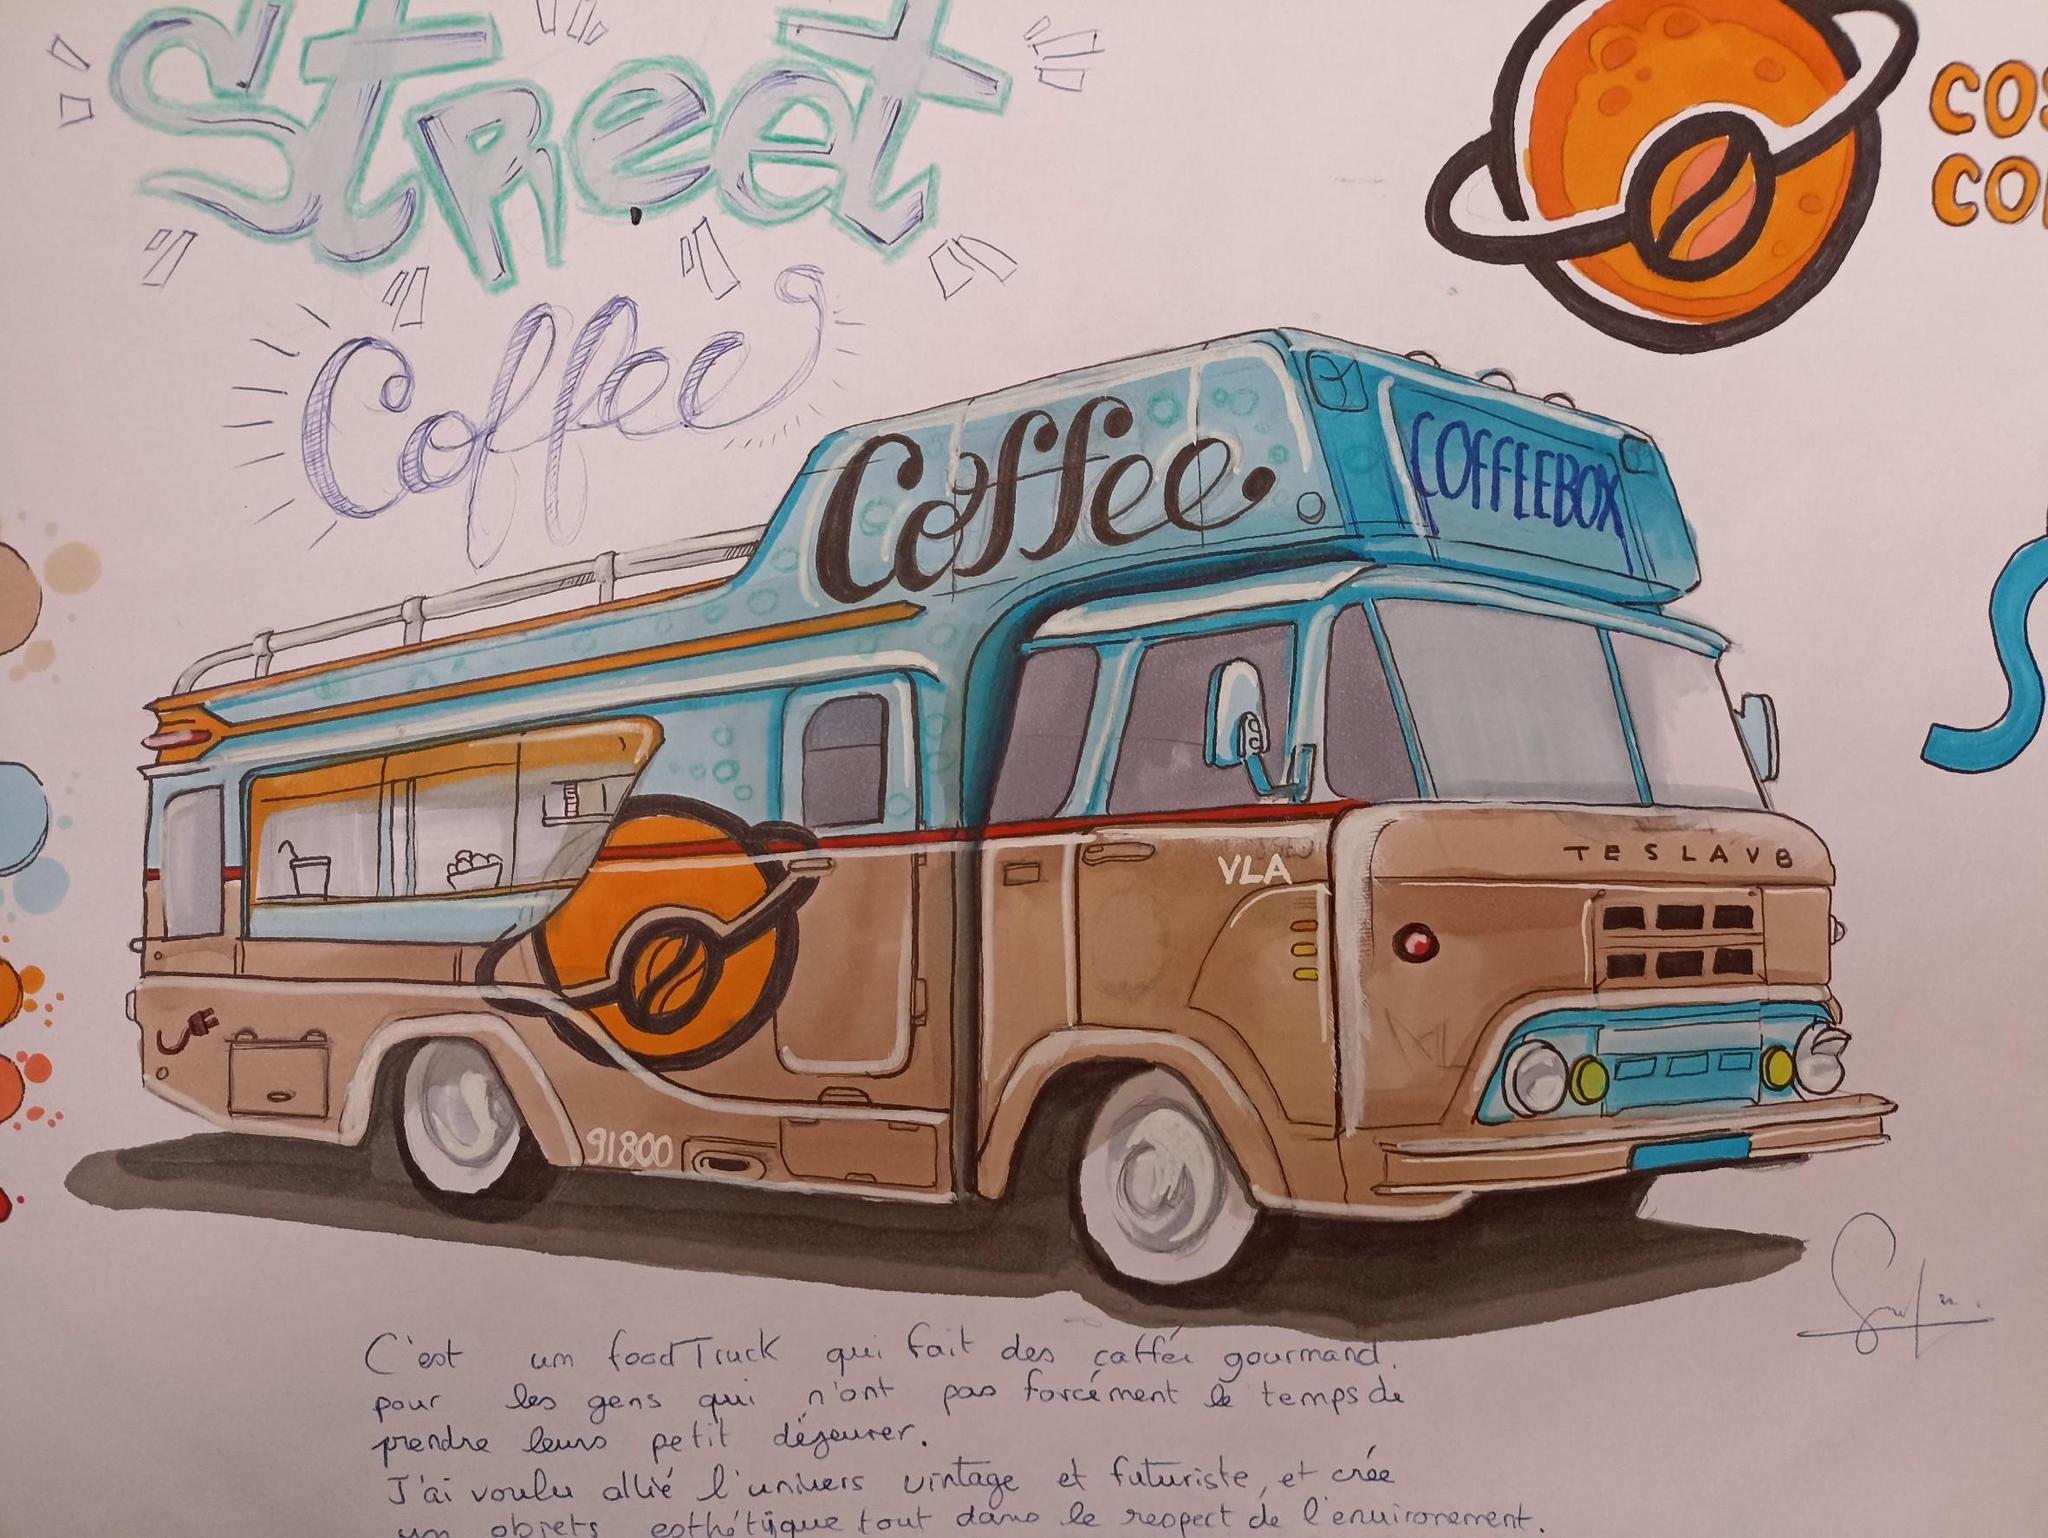 Street
Coffee
COS
CO
Coffee
COFFEEBOX
TESLAV8
VLA
91800
C'est un foodTruck qui fait des caffée gourmand.
pour les gens qui n'ont pas forcément le temps de
prendre leurs petit déjeuner.
J'ai voulu allié l'univers vintage et futuriste, et crée
un objets esthétiique tout dans le respect de l'environement.